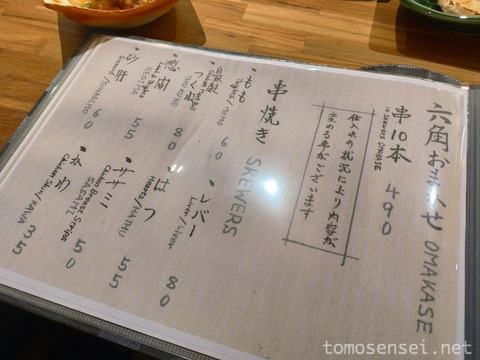 六角おまかせ OMAKASE
串10本 490
10 SKEWERS OMAKASE
仕入れの状況により内容が
変わる事がございます
串焼き SKEWERS
・もも 60
Thighs/MOMO
・自家製つくね 80
TSUKUNE
・葱間 55
NEGIMA
・砂肝 60
Gizzard/SUNAGIMO
・レバー 80
Liver/Liver
・はつ 55
Hearts/HATHU
・ササミ 50
Chicken Breast Strips
SASAMI
・かわ 35
Chicken Skin/KAWA
tomosensei.net